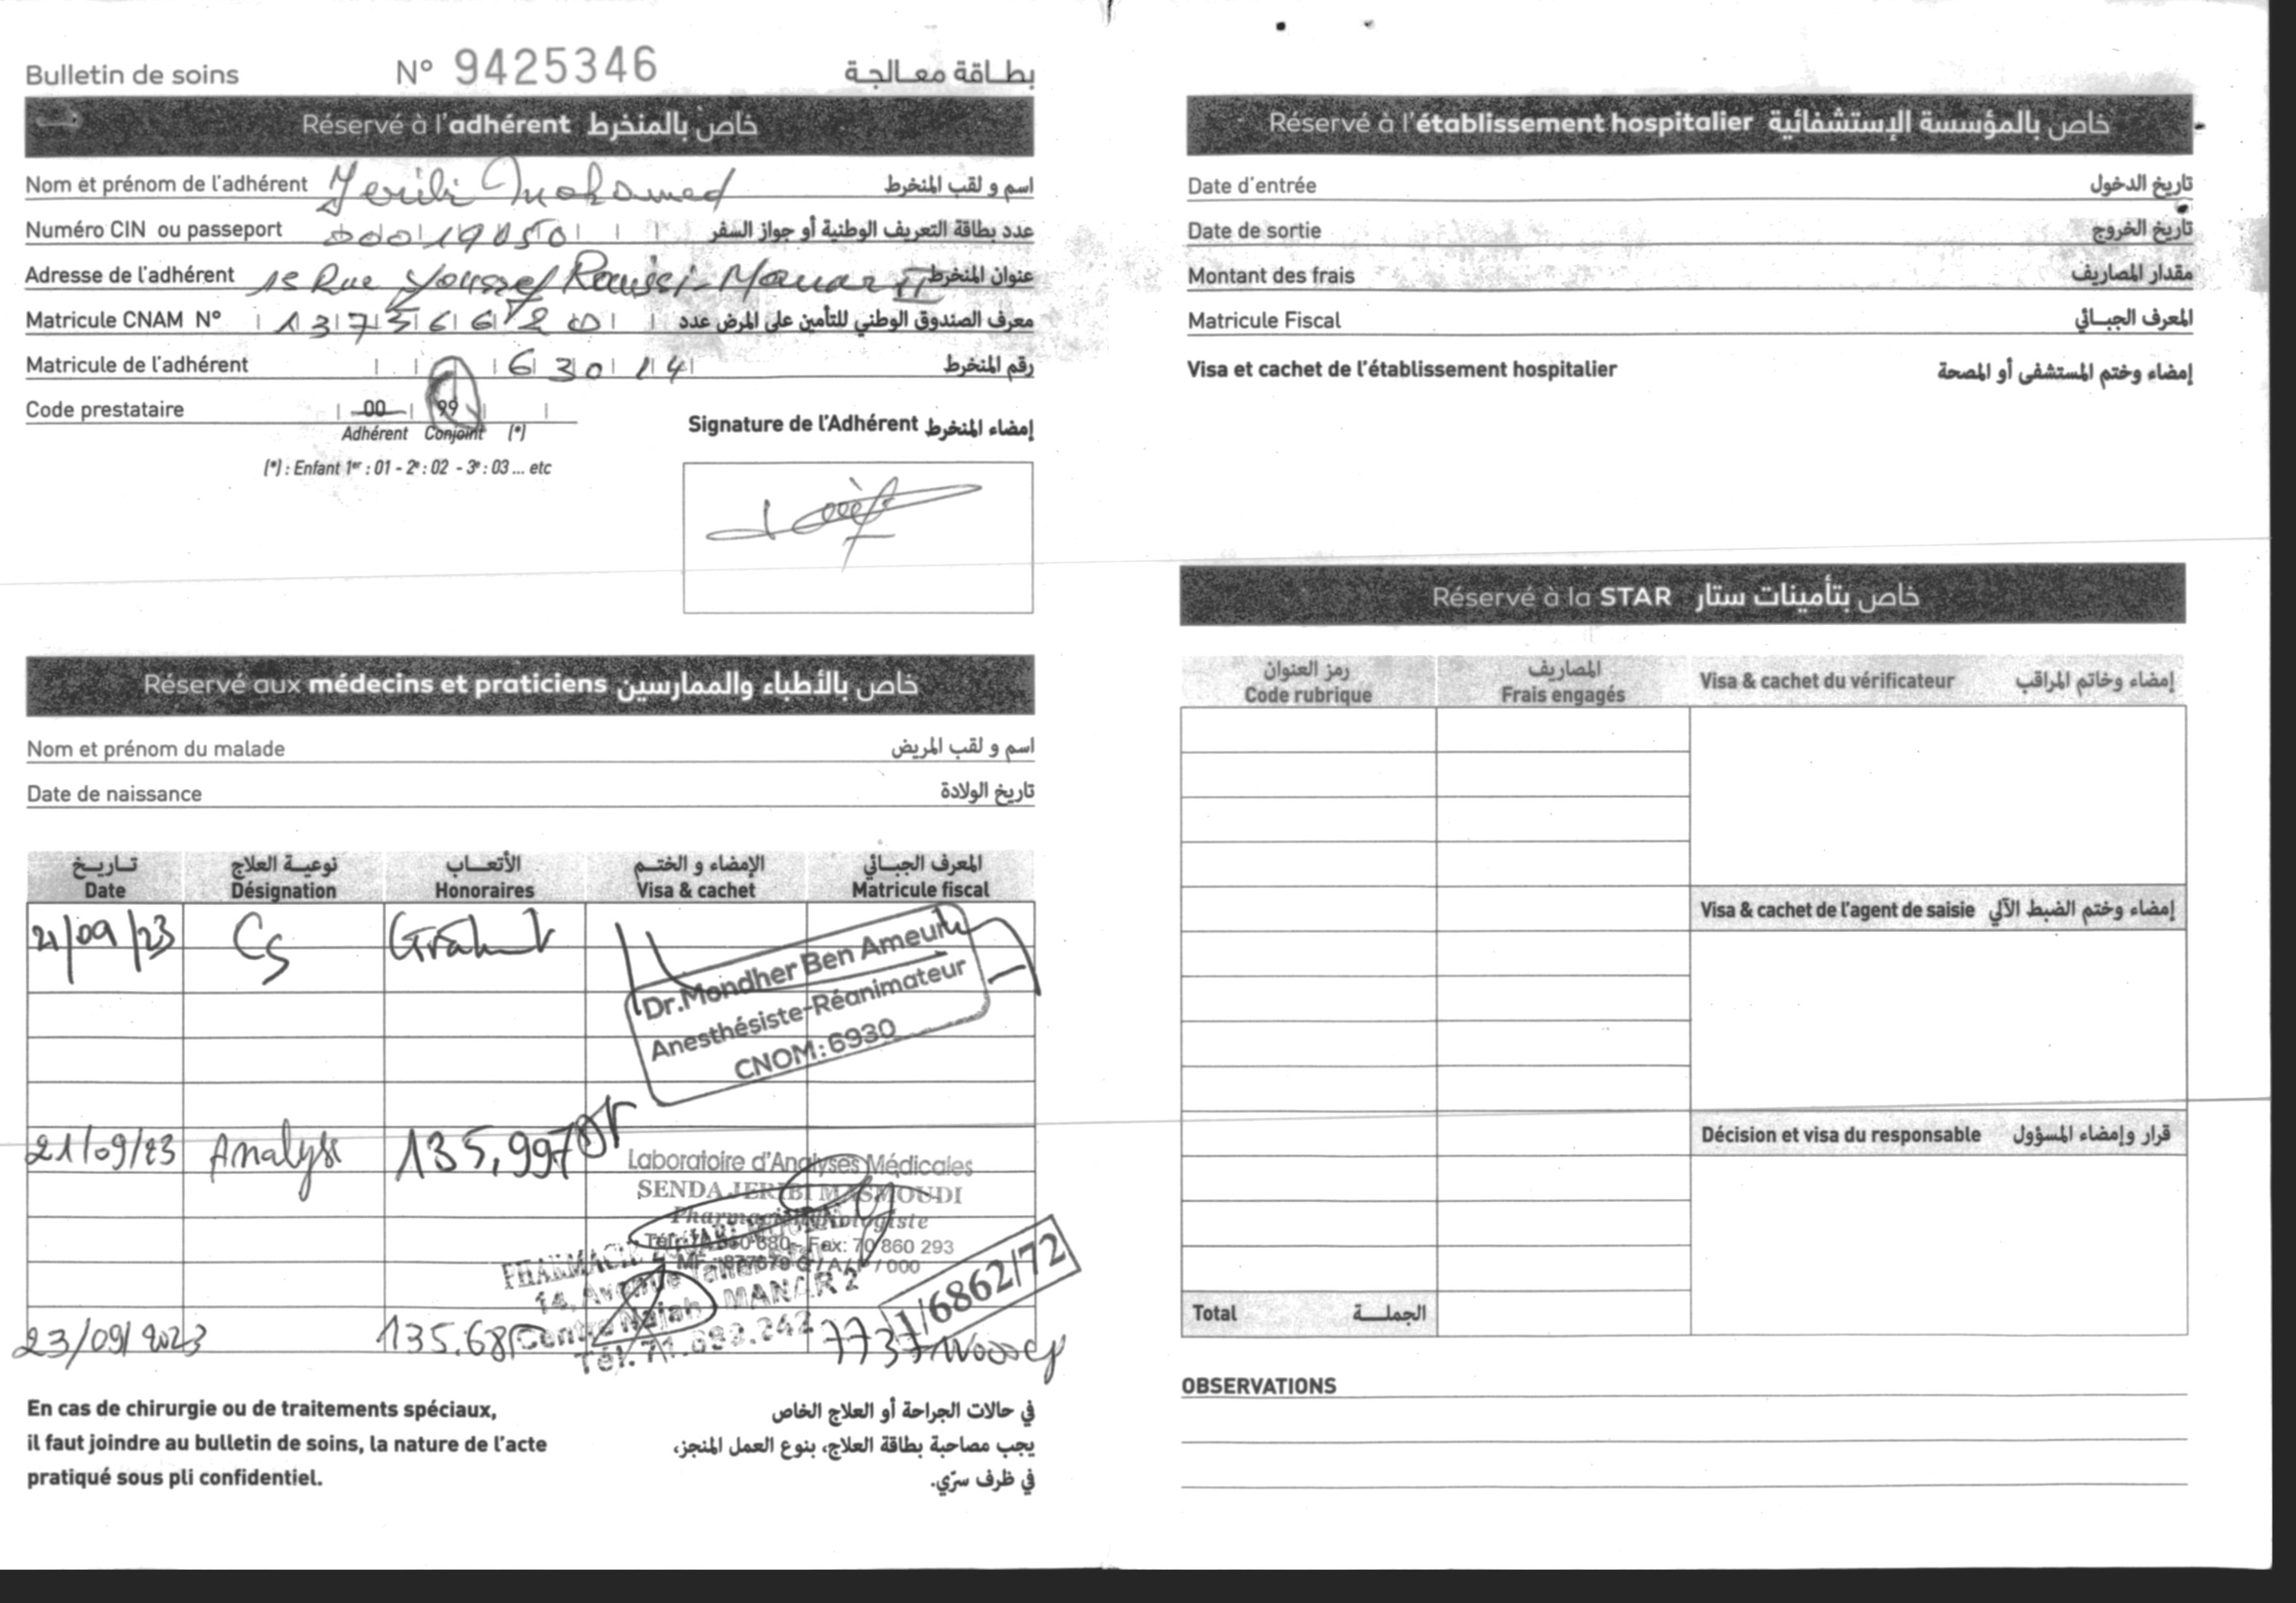 Bulletin de soins N° 9425346 بطاقة معالجة
Réservé à l'adhérent خاص بالمنخرط
Nom et prénom de l'adhérent Jeribi Mohamed اسم و لقب المنخرط
Numéro CIN ou passeport 00019050 عدد بطاقة التعريف الوطنية أو جواز السفر
Adresse de l'adhérent 15 Rue Youssef Rouissi - Manar II عنوان المنخرط
Matricule CNAM N° معرف الصندوق الوطني للتأمين على المرض عدد
Matricule de l'adhérent 63014 رقم المنخرط
Code prestataire 00 99
Adhérent Conjoint (*)
(*) : Enfant 1er : 01 - 2e : 02 - 3e : 03 ... etc
Signature de l'Adhérent إمضاء المنخرط
Réservé aux médecins et praticiens خاص بالأطباء والممارسين
Nom et prénom du malade اسم و لقب المريض
Date de naissance تاريخ الولادة
تاريخ نوعية العلاج الأتعاب الإمضاء و الختم المعرف الجبائي
Date Désignation Honoraires Visa & cachet Matricule fiscal
21/09/23 Cs Gratuit
Dr.Mondher Ben Ameur
Anesthésiste-Réanimateur
CNOM:6930
21/09/23 Analyse 135,997
Laboratoire d'Analyses Médicales
SENDA JERIBI MASMOUDI
Pharmacien Biologiste
Fax: 70 860 293
PHARMACIE
14, Avenue
Centre Najah MANAR 2
Tél. 71.893.242
1/6862/72
23/09/2023 135.68
En cas de chirurgie ou de traitements spéciaux,
il faut joindre au bulletin de soins, la nature de l'acte
pratiqué sous pli confidentiel.
في حالات الجراحة أو العلاج الخاص
يجب مصاحبة بطاقة العلاج، بنوع العمل المنجز،
في ظرف سرّي.
Réservé à l'établissement hospitalier خاص بالمؤسسة الإستشفائية
Date d'entrée تاريخ الدخول
Date de sortie تاريخ الخروج
Montant des frais مقدار المصاريف
Matricule Fiscal المعرف الجبائي
Visa et cachet de l'établissement hospitalier إمضاء وختم المستشفى أو المصحة
Réservé à la STAR خاص بتأمينات ستار
رمز العنوان المصاريف
Code rubrique Frais engagés Visa & cachet du vérificateur إمضاء وخاتم المراقب
Visa & cachet de l'agent de saisie إمضاء وختم الضبط الآلي
Décision et visa du responsable قرار وإمضاء المسؤول
Total الجملة
OBSERVATIONS